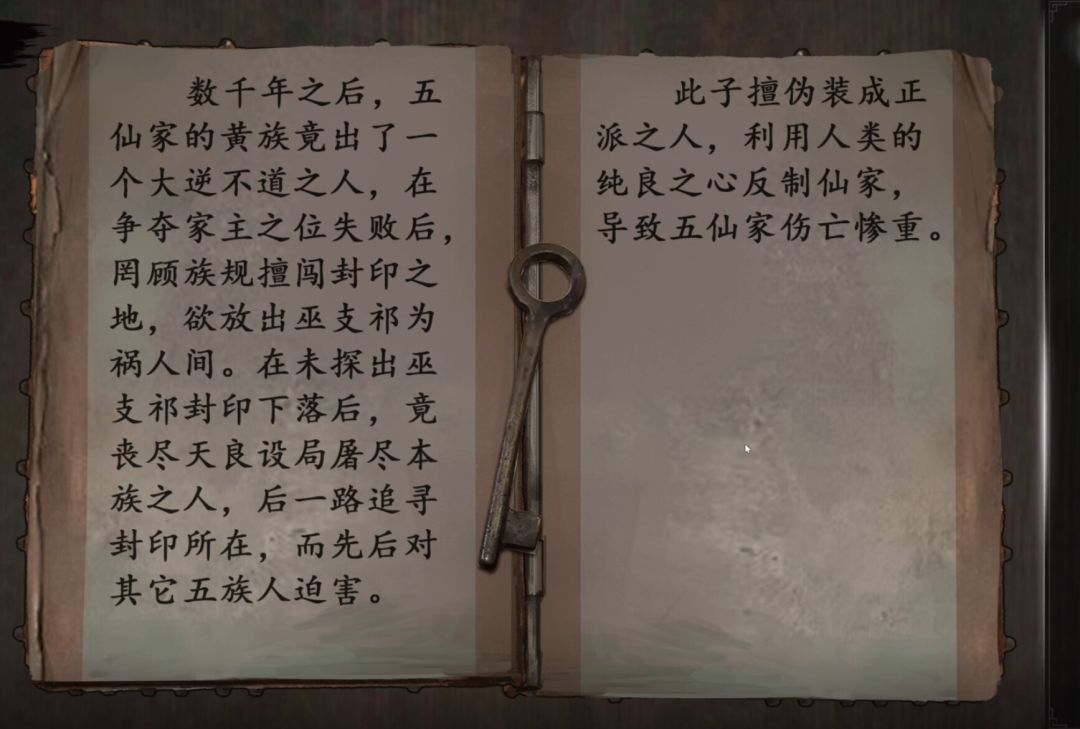 数千年之后，五
仙家的黄族竟出了一
个大逆不道之人，在
争夺家主之位失败后，
罔顾族规擅闯封印之
地，欲放出巫支祁为
祸人间。在未探出巫
支祁封印下落后，竟
丧尽天良设局屠尽本
族之人，后一路追寻
封印所在，而先后对
其它五族人迫害。
此子擅伪装成正
派之人，利用人类的
纯良之心反制仙家，
导致五仙家伤亡惨重。